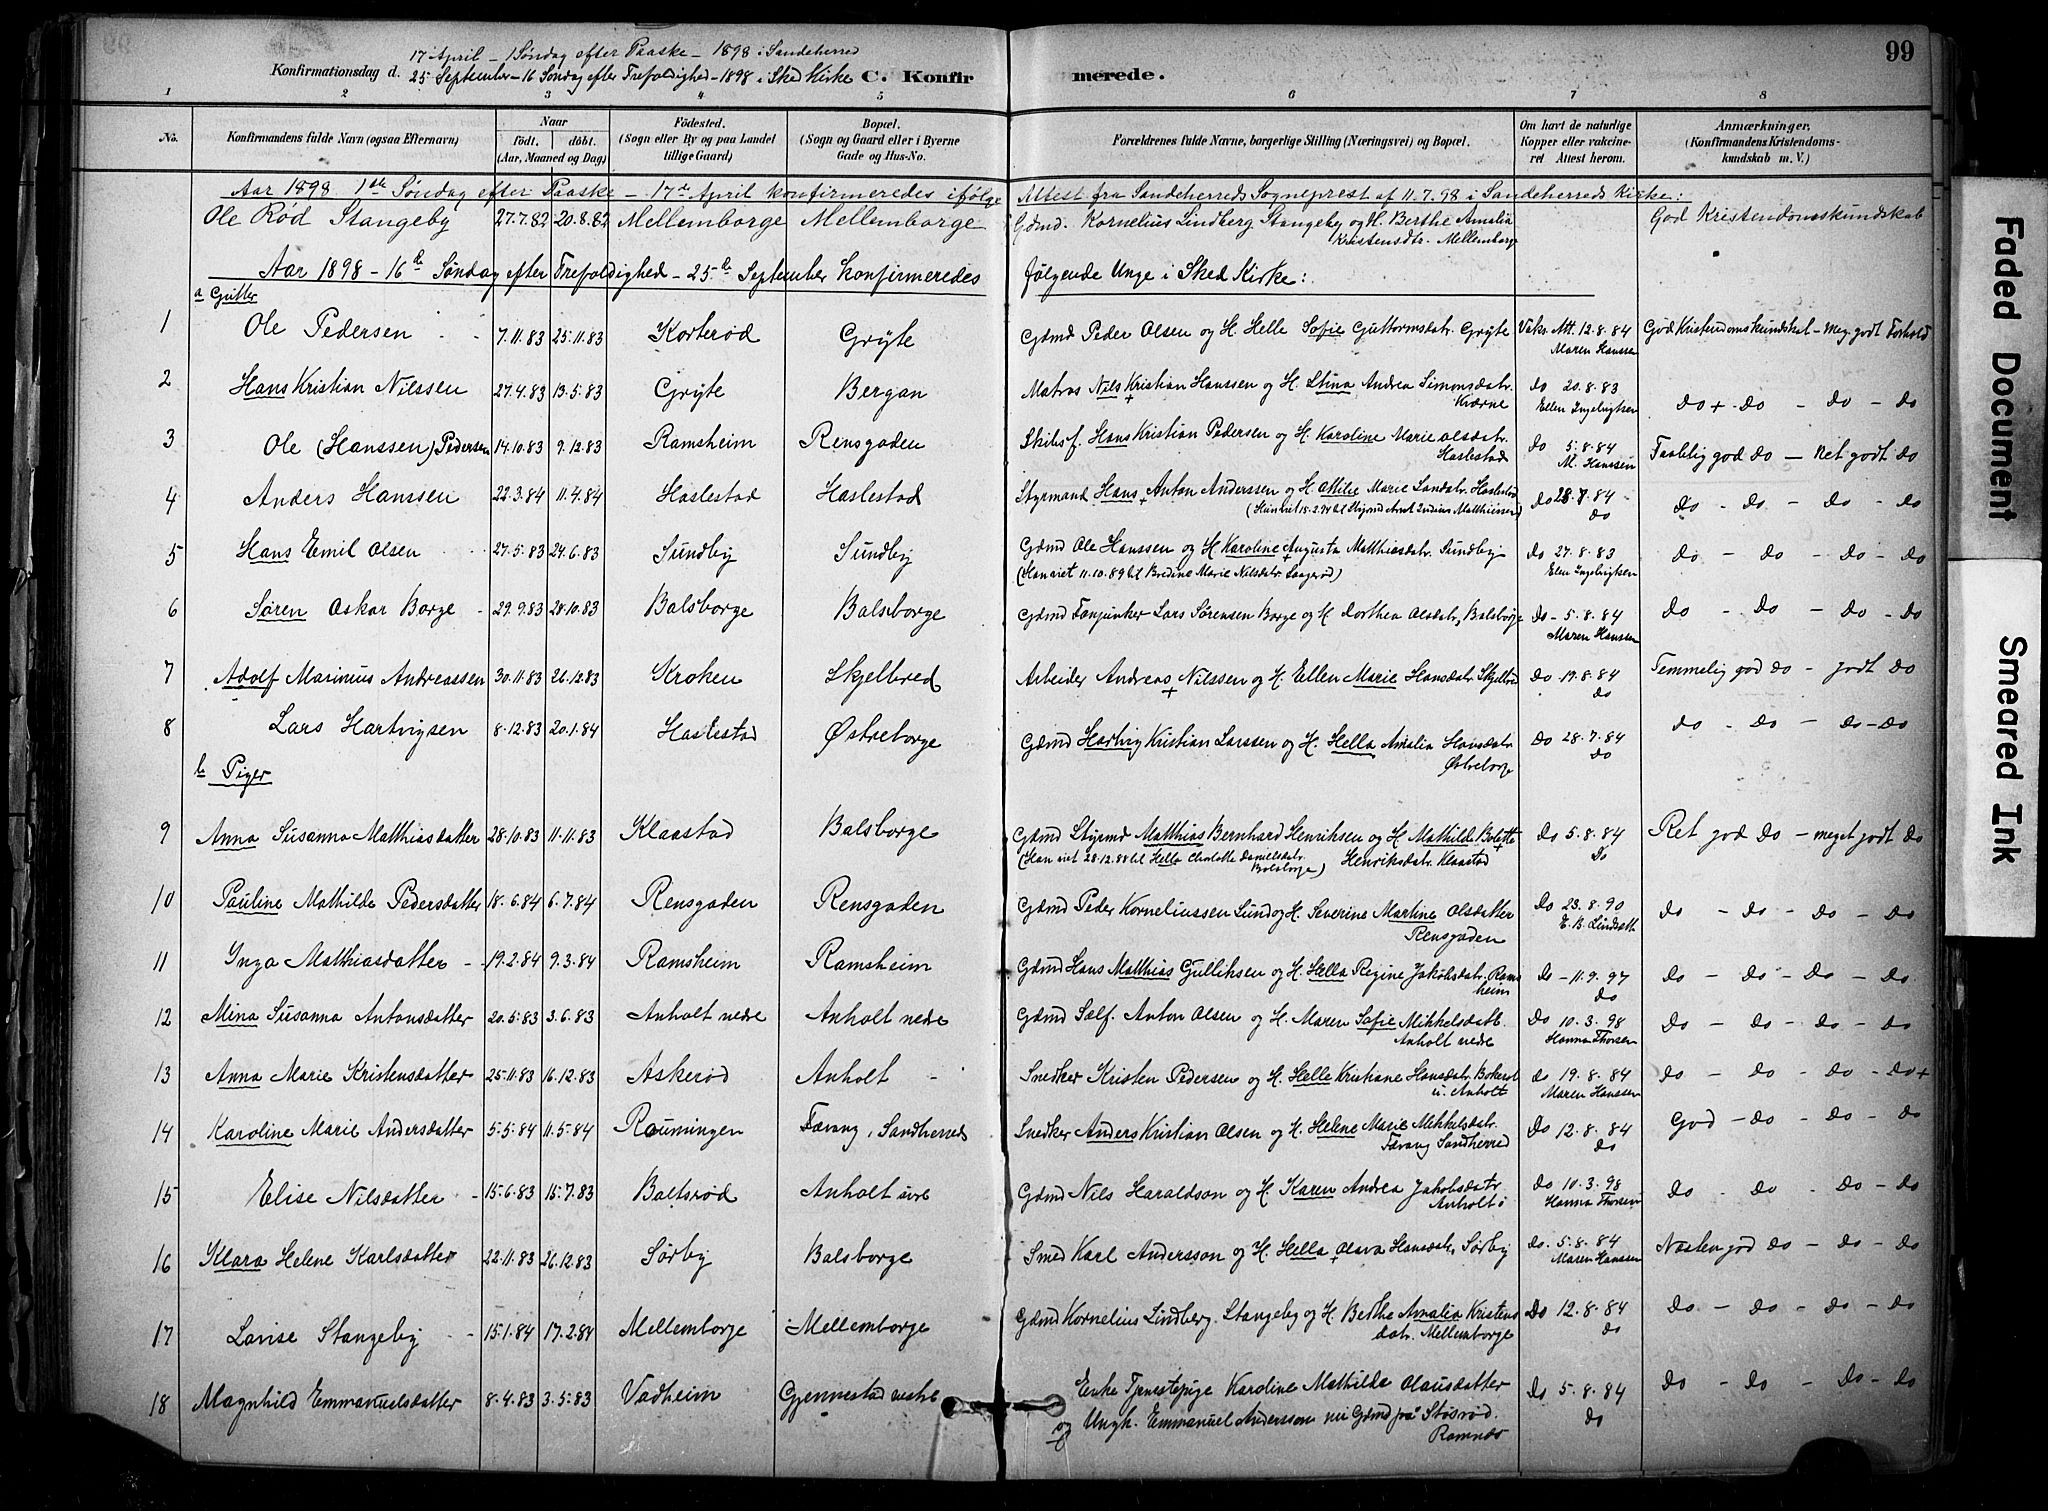 99
17 April - 1 Søndag efter Paaske - 1898 i Sandeherred
Konfirmationsdag d. 25 September - 16 Søndag efter Trefoldighed - 1898 i Sked Kirke C. Konfirmerede.
1 2 3 4 5 6 7 8
No. Konfirmandens fulde Navn (ogsaa Efternavn) Naar født. døbt. (Aar, Maaned og Dag) Fødested. (Sogn eller By og paa Landet tillige Gaard) Bopæl. (Sogn og Gaard eller i Byerne Gade og Hus-No. Forældrenes fulde Navne, borgerlige Stilling (Næringsvei) og Bopæl. Om havt de naturlige Kopper eller vakcineret Attest herom. Anmærkninger, (Konfirmandens Kristendomskundskab m. V.)
Aar 1898 1ste Søndag efter Paaske - 17de April konfirmeredes ifølge Attest fra Sandeherreds Sogneprest af 11.7.98 i Sandeherreds Kirke:
Ole Rød Stangeby 27.7.82 20.8.82 Mellemborge Mellemborge Gdmd. Kornelius Lindberg Stangeby og H. Berthe Amalia God Kristendomskundskab
Kristensdtr. Mellemborge
Aar 1898 - 16de Søndag efter Trefoldighed - 25de September konfirmeredes følgende Unge i Sked Kirke:
a Gutter
1 Ole Pedersen 7.11.83 25.11.83 Korterød Gryte Gdmd Peder Olsen og H. Helle Sofie Guttormsdatr. Gryte Vakc. Att. 12.8.84 God Kristendomskundskab - Meg. godt Forhold
Maren Hanssen
2 Hans Kristian Nilssen 27.4.83 13.5.83 Gryte Bergan Matros Nils Kristian Hanssen og H. Stina Andrea Simonsdatr. do 20.8.83 do + do - do - do
Kværne Ellen Ingebrigtsen
3 Ole (Hanssen) Pedersen 14.10.83 9.12.83 Ramsheim Rensgaden Skibsf. Hans Kristian Pedersen og H. Karoline Marie Olsdatr. do 5.8.84 Taalelig god do - Ret godt do
Haslestad M. Hanssen
4 Anders Hanssen 22.3.84 11.4.84 Haslestad Haslestad Styrmand Hans Anton Anderssen og H. Marie Haslestad do 28.7.84 do - do - do - do
(Hun viet 18.2.94 til Matthiassen) do
5 Hans Emil Olsen 27.5.83 24.6.83 Sundby Sundby Gdmd Ole Hanssen og H Karoline Augusta Matthiasdatr. Sundby do 27.8.83 do - do - do - do
(Han viet 11.10.89 til Bredine Marie Nilsdatr. Saagerød) Ellen Ingebrigtsen
6 Søren Oskar Borge 29.9.83 28.10.83 Balsborge Balsborge Gdmd Fanjunker Lars Sørensen Borge og H. Dorthea Olsdatr, Balsborge do - 5.8.84 do - do - do - do
Maren Hanssen
7 Adolf Marinius Andreassen 30.11.83 26.12.83 Kroken Skjelbred Arbeider Andreas Nilssen og H. Ellen Marie Hansdatr. Skjelbred do - 19.8.84 Temmelig god do - godt do
do
8 Lars Hartvigsen 8.12.83 20.1.84 Haslestad Østreborge Gdmd Hartvig Kristian Larssen og H. Hella Amalia Hansdatr. do 28.7.84 do - do - do - do
Østreborge do
b Piger
9 Anna Susanna Matthiasdatter 28.10.83 11.11.83 Klaastad Balsborge Gdmd Styrmd Matthias Bernhard Henriksen og H. Mathilde Bolette do 5.8.84 Ret god do - meget godt do
(Han viet 28.12.88 til Hella Charlotte Danielsdatr. Balsborge) Henriksdatr. Klaastad do
10 Pauline Mathilde Pedersdatter 18.6.84 6.7.84 Rensgaden Rensgaden Gdmd Peder Korneliussen Lund og H. Severine Martine Olsdatter do 23.8.90 do - do - do - do
Rensgaden E. B. Lindseth
11 Inga Matthiasdatter 19.2.84 9.3.84 Ramsheim Ramsheim Gdmd Hans Matthias Gulliksen og H. Hella Regine Jakobsdatr. Ramsheim do - 11.9.97 do - do - do - do
do
12 Mina Susanna Antonsdatter 20.5.83 3.6.83 Anholt nedre Anholt nedre Gdmd Sælf. Anton Olsen og H. Maren Sofie Mikkelsdatt. do 10.3.98 do - do - do - do
Anholt nedre Hanna Thorsen
13 Anna Marie Kristensdatter 25.11.83 16.12.83 Askerød Anholt Snedker Kristen Pedersen og H. Helle Kristiane Hansdatr. do 19.8.84 do - do - do - do +
u. Anholt Maren Hanssen
14 Karoline Marie Andersdatter 5.5.84 11.5.84 Roumingen Færang, Sandherred Snedker Anders Kristian Olsen og H. Helene Marie Mikkelsdatr. do 12.8.84 God - do - do - do
Færang Sandherred do
15 Elise Nilsdatter 15.6.83 15.7.83 Baltsrød Anholt øvre Gdmd Nils Haraldson og H. Karen Andrea Jakobsdatr. do 10.3.98 do - do - do - do
Anholt ø Hanna Thorsen
16 Klara Helene Karlsdatter 22.11.83 26.12.83 Sørby Balsborge Smed Karl Andersson og H. Hella Olava Hansdatr, Sørby do. 5.8.84 Næsten god do - do - do
Maren Hanssen
17 Lovise Stangeby 15.1.84 17.2.84 Mellemborge Mellemborge Gdmd Kornelius Lindberg Stangeby og H. Berthe Amalia Kristens do 12.8.84 do - do - do - do
datr. Mellemborge do
18 Magnhild Emmanuelsdatter 8.4.83 3.5.83 Vadheim Gjennestad vestre Enke Tjenestepige Karoline Mathilde Olausdatter do 5.8.84 do - do - do - do
og Ungk. Emmanuel Anderssen nu Gdmd paa Støsrød. do
Ramnæs
Faded Document
Smeared Ink